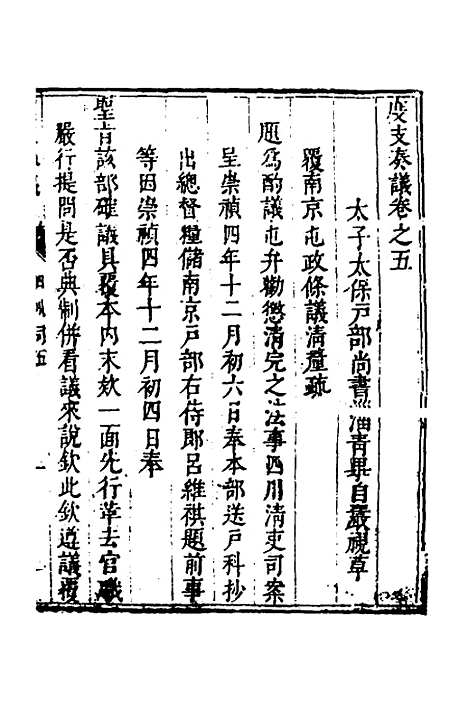 度支奏議卷之五
太子太保戸部尚書淄青畢自嚴視草
覆南京屯政條議清釐疏
題為酌議屯弁勸懲清完之法事四川清吏司案
呈崇禎四年十二月初六日奉本部送戸科抄
出總督糧儲南京戸部右侍郎呂維祺題前事
等因崇禎四年十二月初四日奉
聖旨該部確議具覆本內末欸一面先行革去官職
嚴行提問是否典制併看議來說欽此欽遵議覆
四川司五
一